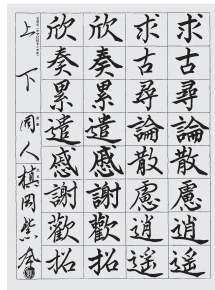 求古尋論散慮逍遙
求古尋論散慮逍遙
欣奏累遣慼謝歡招
欣奏累遣慼謝歡招
上下